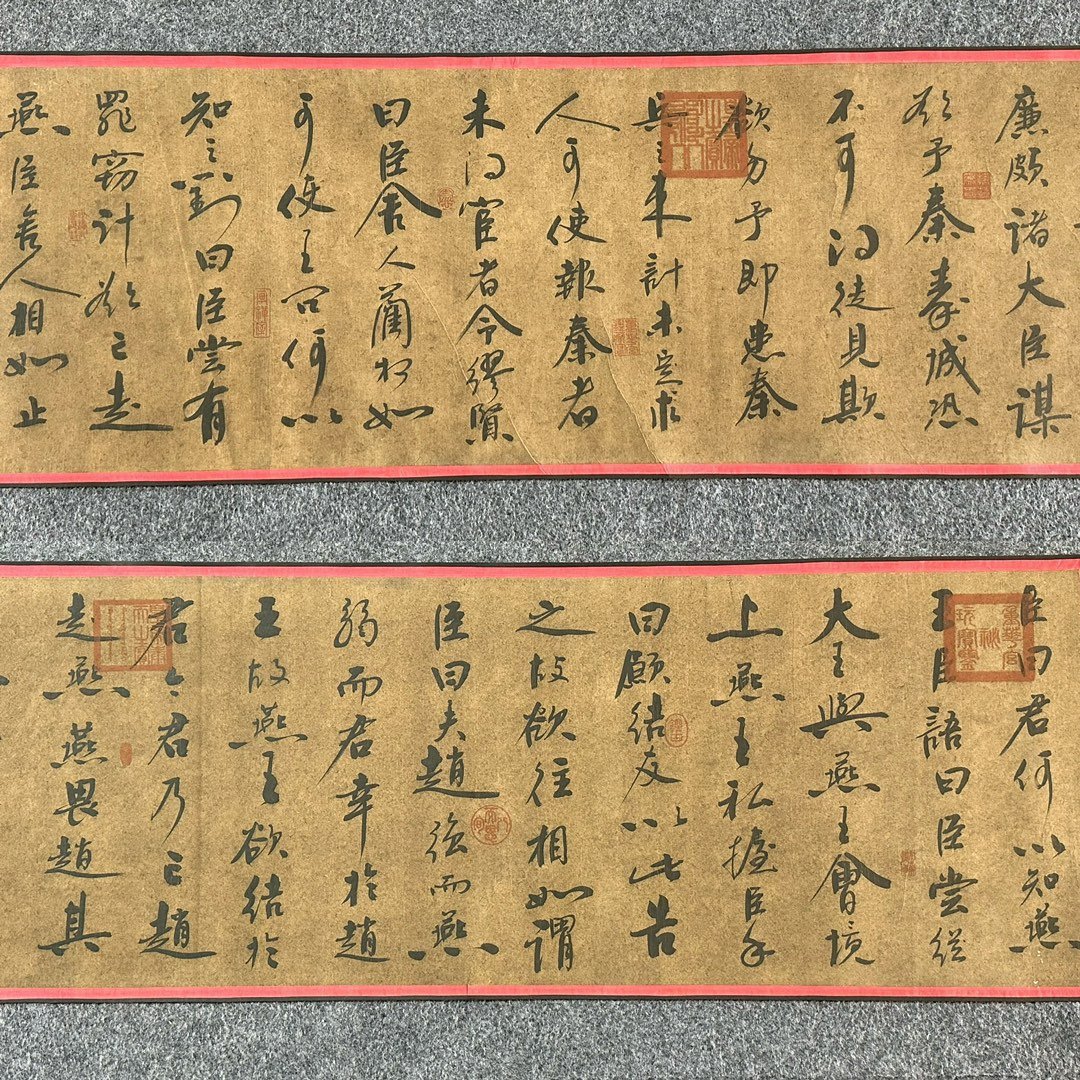 廉頗諸大臣謀
欲予秦秦城恐
不可得徒見欺
欲勿予即患秦
兵之來計未定求
人可使報秦者
未得宦者令繆賢
曰臣舍人藺相如
可使王問何以
知之對曰臣嘗有
罪竊計欲亡走
燕臣舍人相如止
臣曰君何以知燕
王臣語曰臣嘗從
大王與燕王會境
上燕王私握臣手
曰願結友以此告
之故欲往相如謂
臣曰夫趙強而燕
弱而君幸於趙
王故燕王欲結於
君今君乃亡趙
走燕燕畏趙其